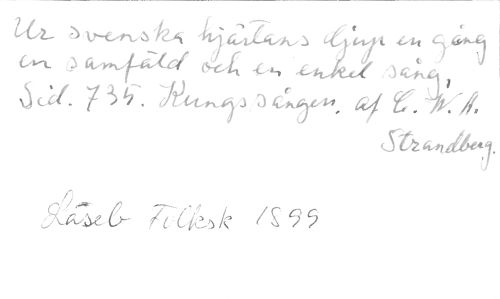 Ur svenska hjärtans djup en gång
en samfäld och en enkel sång,
Sid. 735. Kungssången. af C. W. A.
Strandberg.
Läseb Folksk 1899